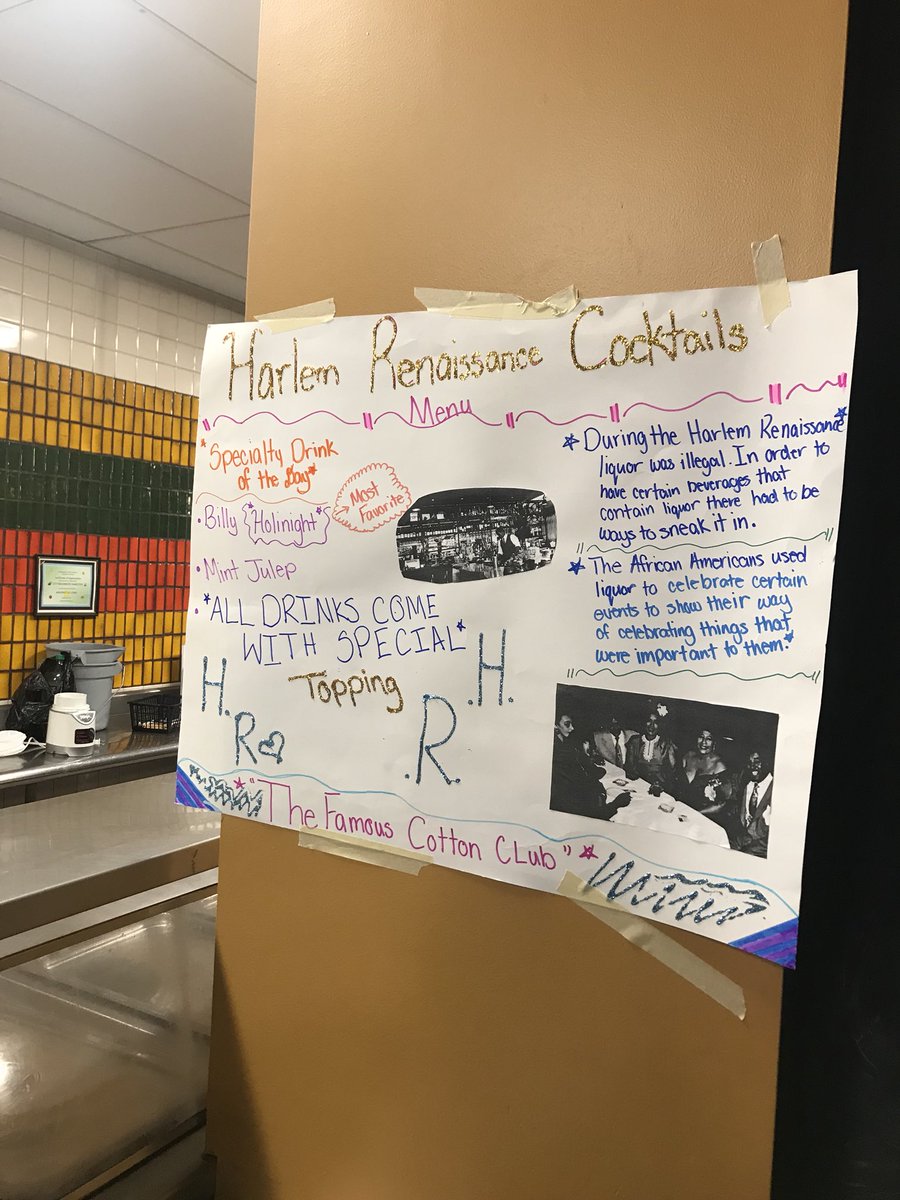 Harlem Renaissance Cocktails
Menu
*Specialty Drink
of the Day*
• Billy "Holinight"
Most
Favorite
• Mint Julep
• *ALL DRINKS COME
WITH SPECIAL*
Topping
H.
R
.H.
.R.
During the Harlem Renaissance
liquor was illegal. In order to
have certain beverages that
contain liquor there had to be
ways to sneak it in.
The African Americans used
liquor to celebrate certain
events to show their way
of celebrating things that
were important to them.
"The Famous Cotton Club"